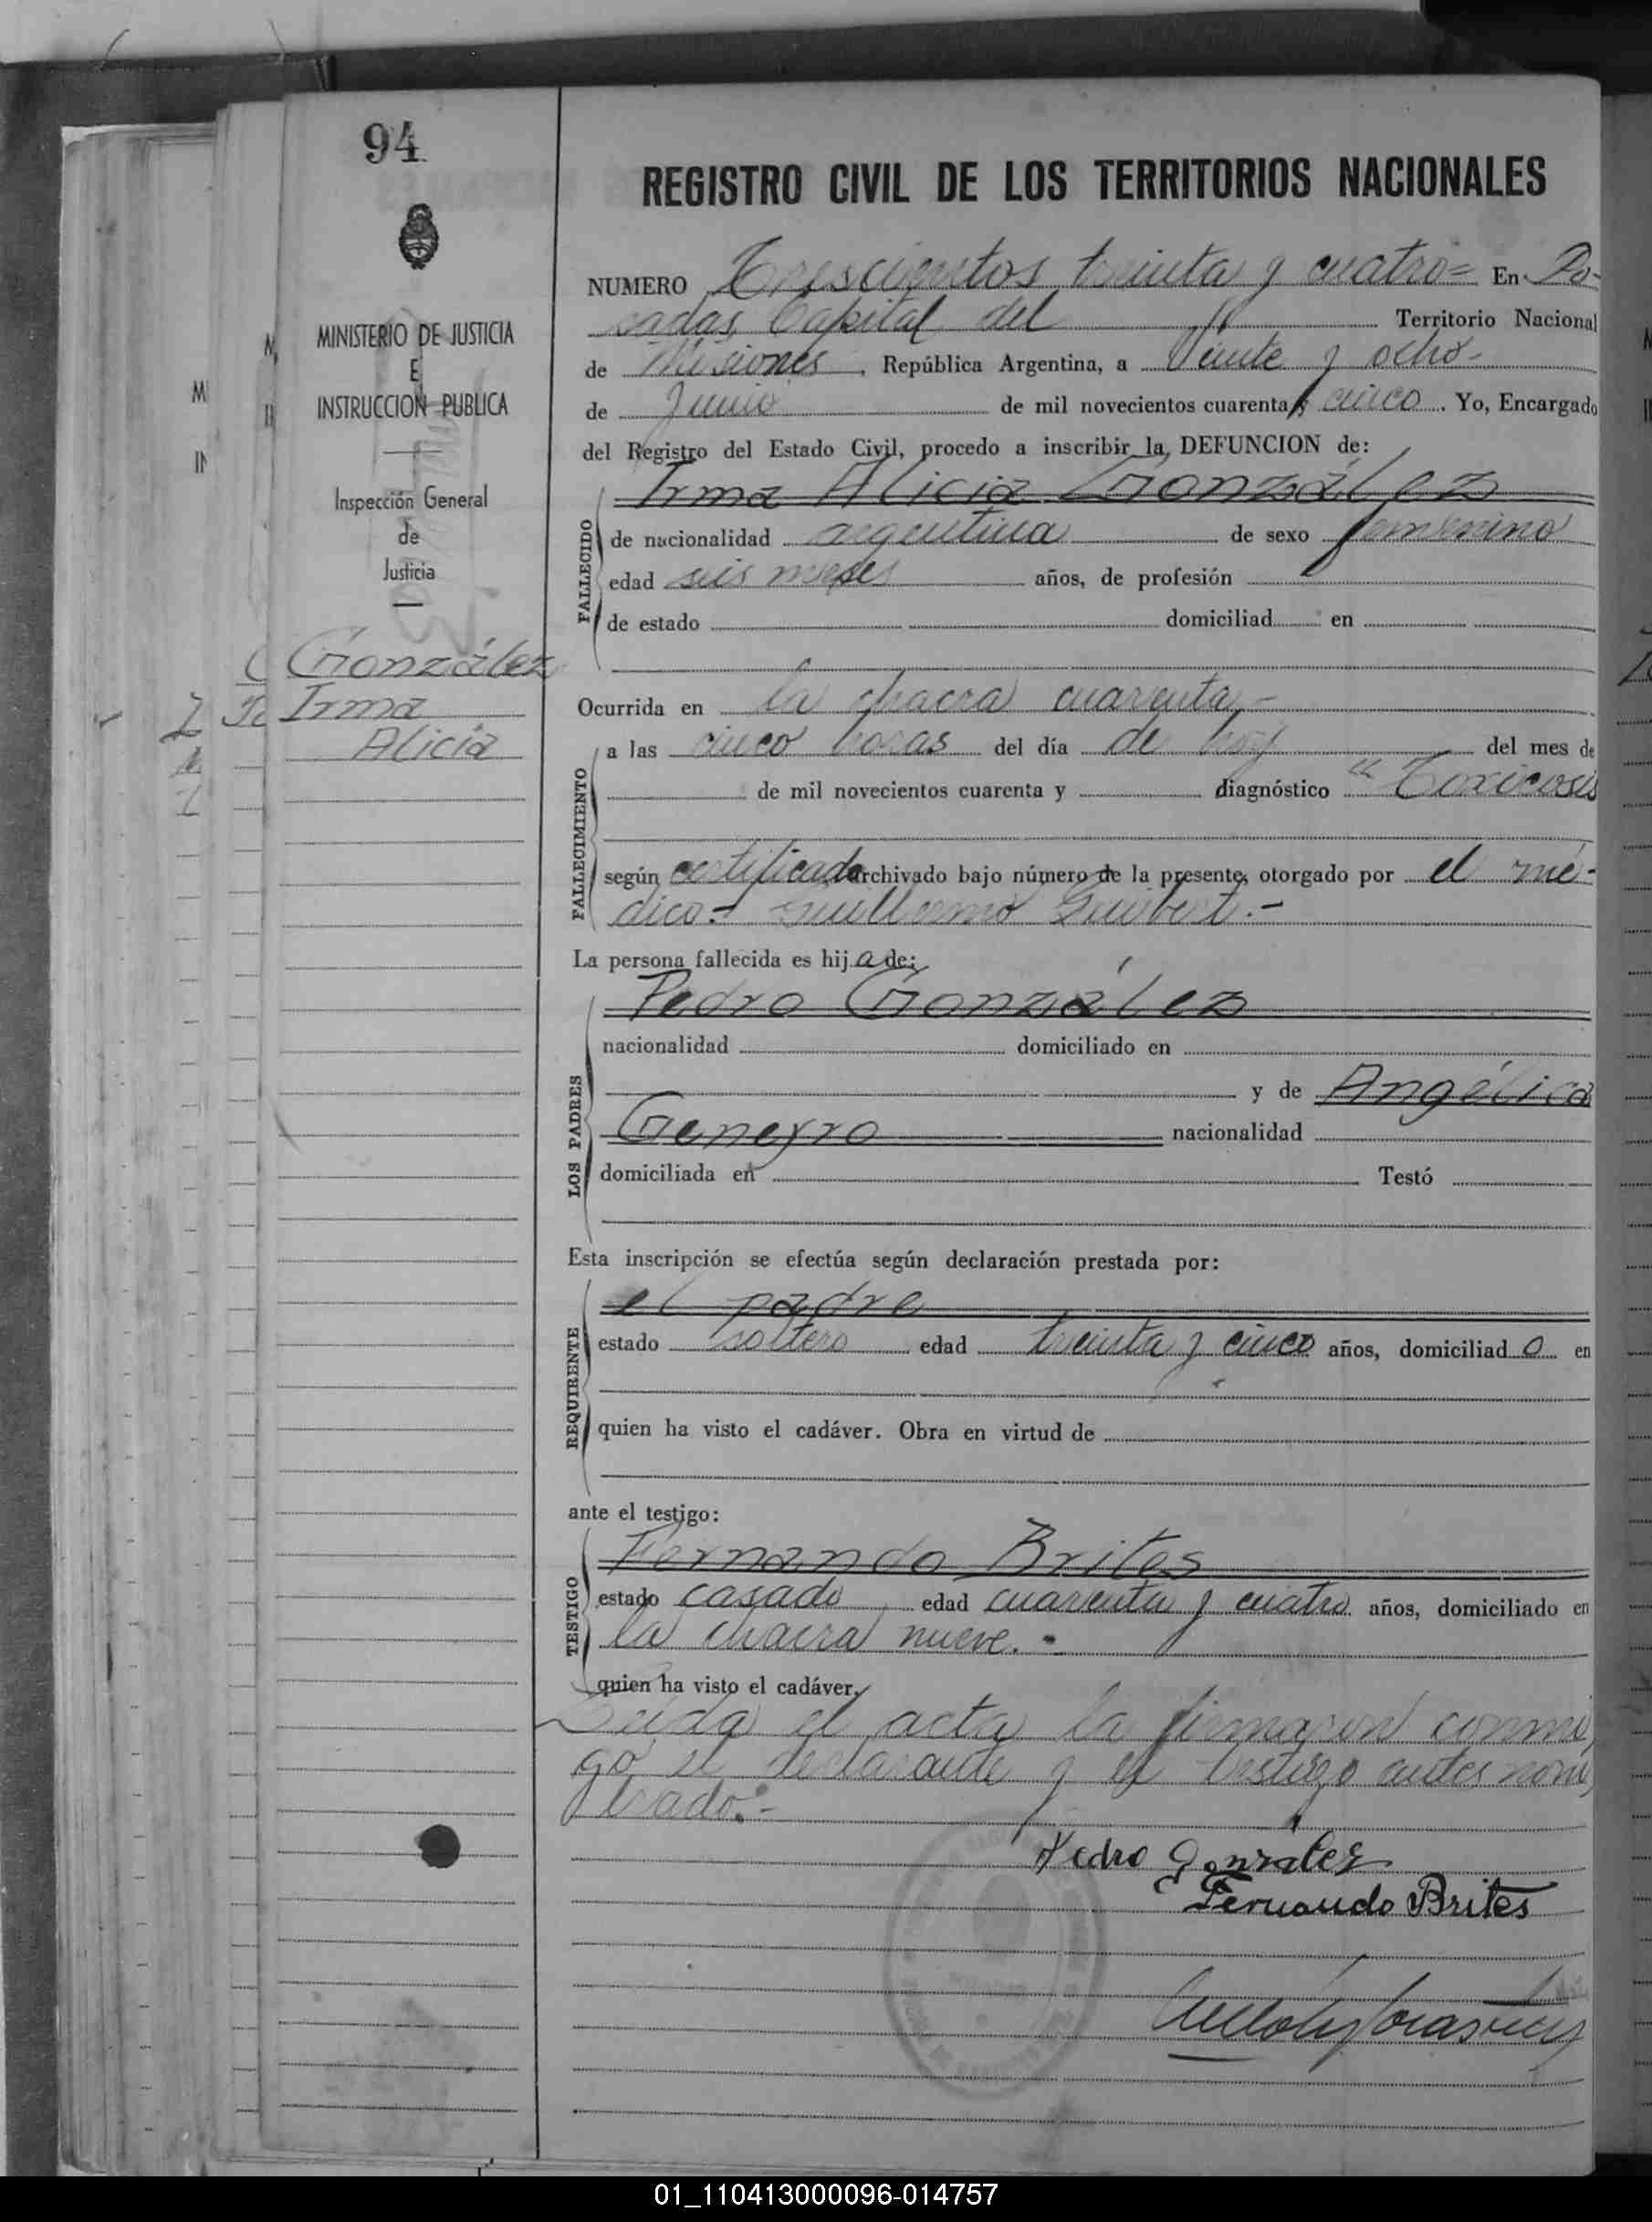 94
REGISTRO CIVIL DE LOS TERRITORIOS NACIONALES
MINISTERIO DE JUSTICIA
E
INSTRUCCION PUBLICA
Inspección General
de
Justicia
González
Irma
Alicia
NUMERO Trescientos treinta y cuatro= En Po-
sadas Capital del Territorio Nacional
de Misiones, República Argentina, a Veinte y ocho-
de Junio de mil novecientos cuarenta y cinco. Yo, Encargado
del Registro del Estado Civil, procedo a inscribir la DEFUNCION de:
Irma Alicia González
FALLECIDO
de nacionalidad argentina de sexo femenino
edad seis meses años, de profesión
de estado domiciliad en
Ocurrida en la chacra cuarenta.-
FALLECIMIENTO
a las cinco horas del día de hoy del mes de
de mil novecientos cuarenta y diagnóstico "Toxicosis
según certificado archivado bajo número de la presente, otorgado por el mé-
dico.- Guillermo .-
La persona fallecida es hija de:
Pedro González
LOS PADRES
nacionalidad domiciliado en
y de Angélica
Geneyro nacionalidad
domiciliada en Testó
Esta inscripción se efectúa según declaración prestada por:
el padre
REQUIRENTE
estado soltero edad treinta y cinco años, domiciliado en
quien ha visto el cadáver. Obra en virtud de
ante el testigo:
Fernando Brites
TESTIGO
estado casado edad cuarenta y cuatro años, domiciliado en
la chacra nueve.-
quien ha visto el cadáver.
Leida el acta la firmaron conmi
go el declarante y el testigo antes nom
brado.-
Pedro Gonzalez
Fernando Brites
01_110413000096-014757